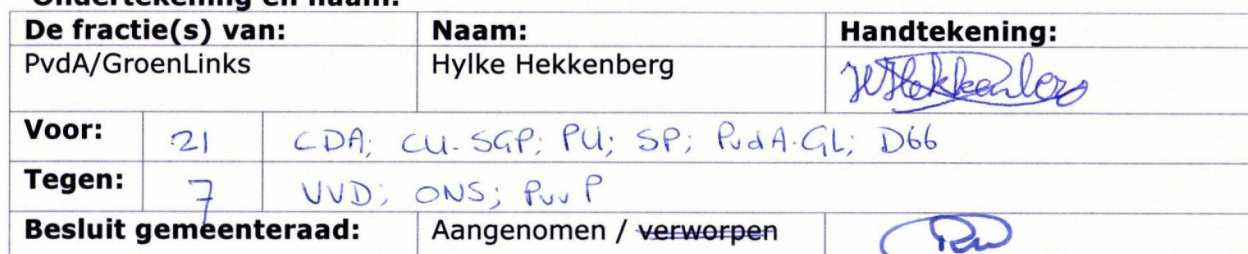 Ondertekening en naam:
De fractie(s) van: Naam: Handtekening:
PvdA/GroenLinks Hylke Hekkenberg HHekkenberg
Voor: 21 CDA; CU-SGP; PU; SP; PvdA-GL; D66
Tegen: 7 VVD; ONS; PvvP
Besluit gemeenteraad: Aangenomen / verworpen